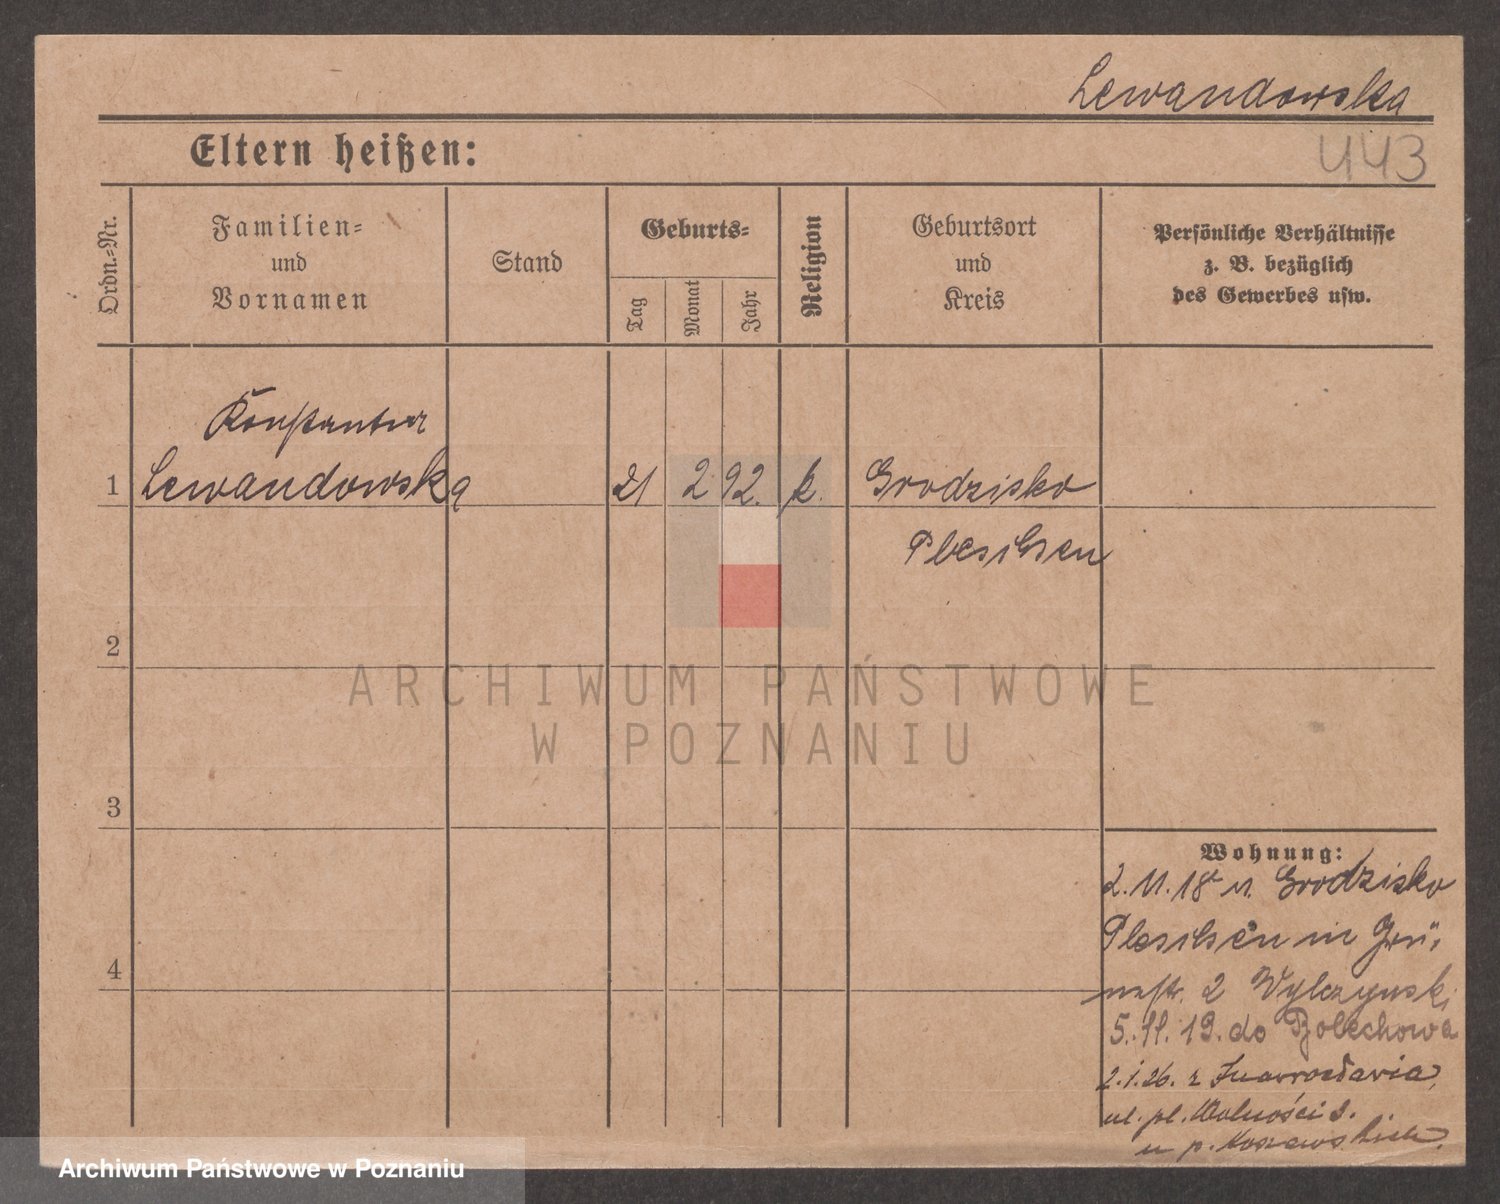 Lewandowska
443
Eltern heißen:
Ordn.-Nr.
Familien-
und
Vornamen
Stand
Geburts-
Tag
Monat
Jahr
Religion
Geburtsort
und
Kreis
Persönliche Verhältnisse
z. B. bezüglich
des Gewerbes usw.
1
Lewandowska 21 2 92. k. Grodzisko
Pleschen
2
3
4
Wohnung:
2.11.18 v. Grodzisko
Pleschen in Grü-
nestr. 2
5.11.19. do Bolechowa
2.1.26. z Inowrocławia,
ul. pl. Wolności
u p.
ARCHIWUM PAŃSTWOWE
W POZNANIU
Archiwum Państwowe w Poznaniu